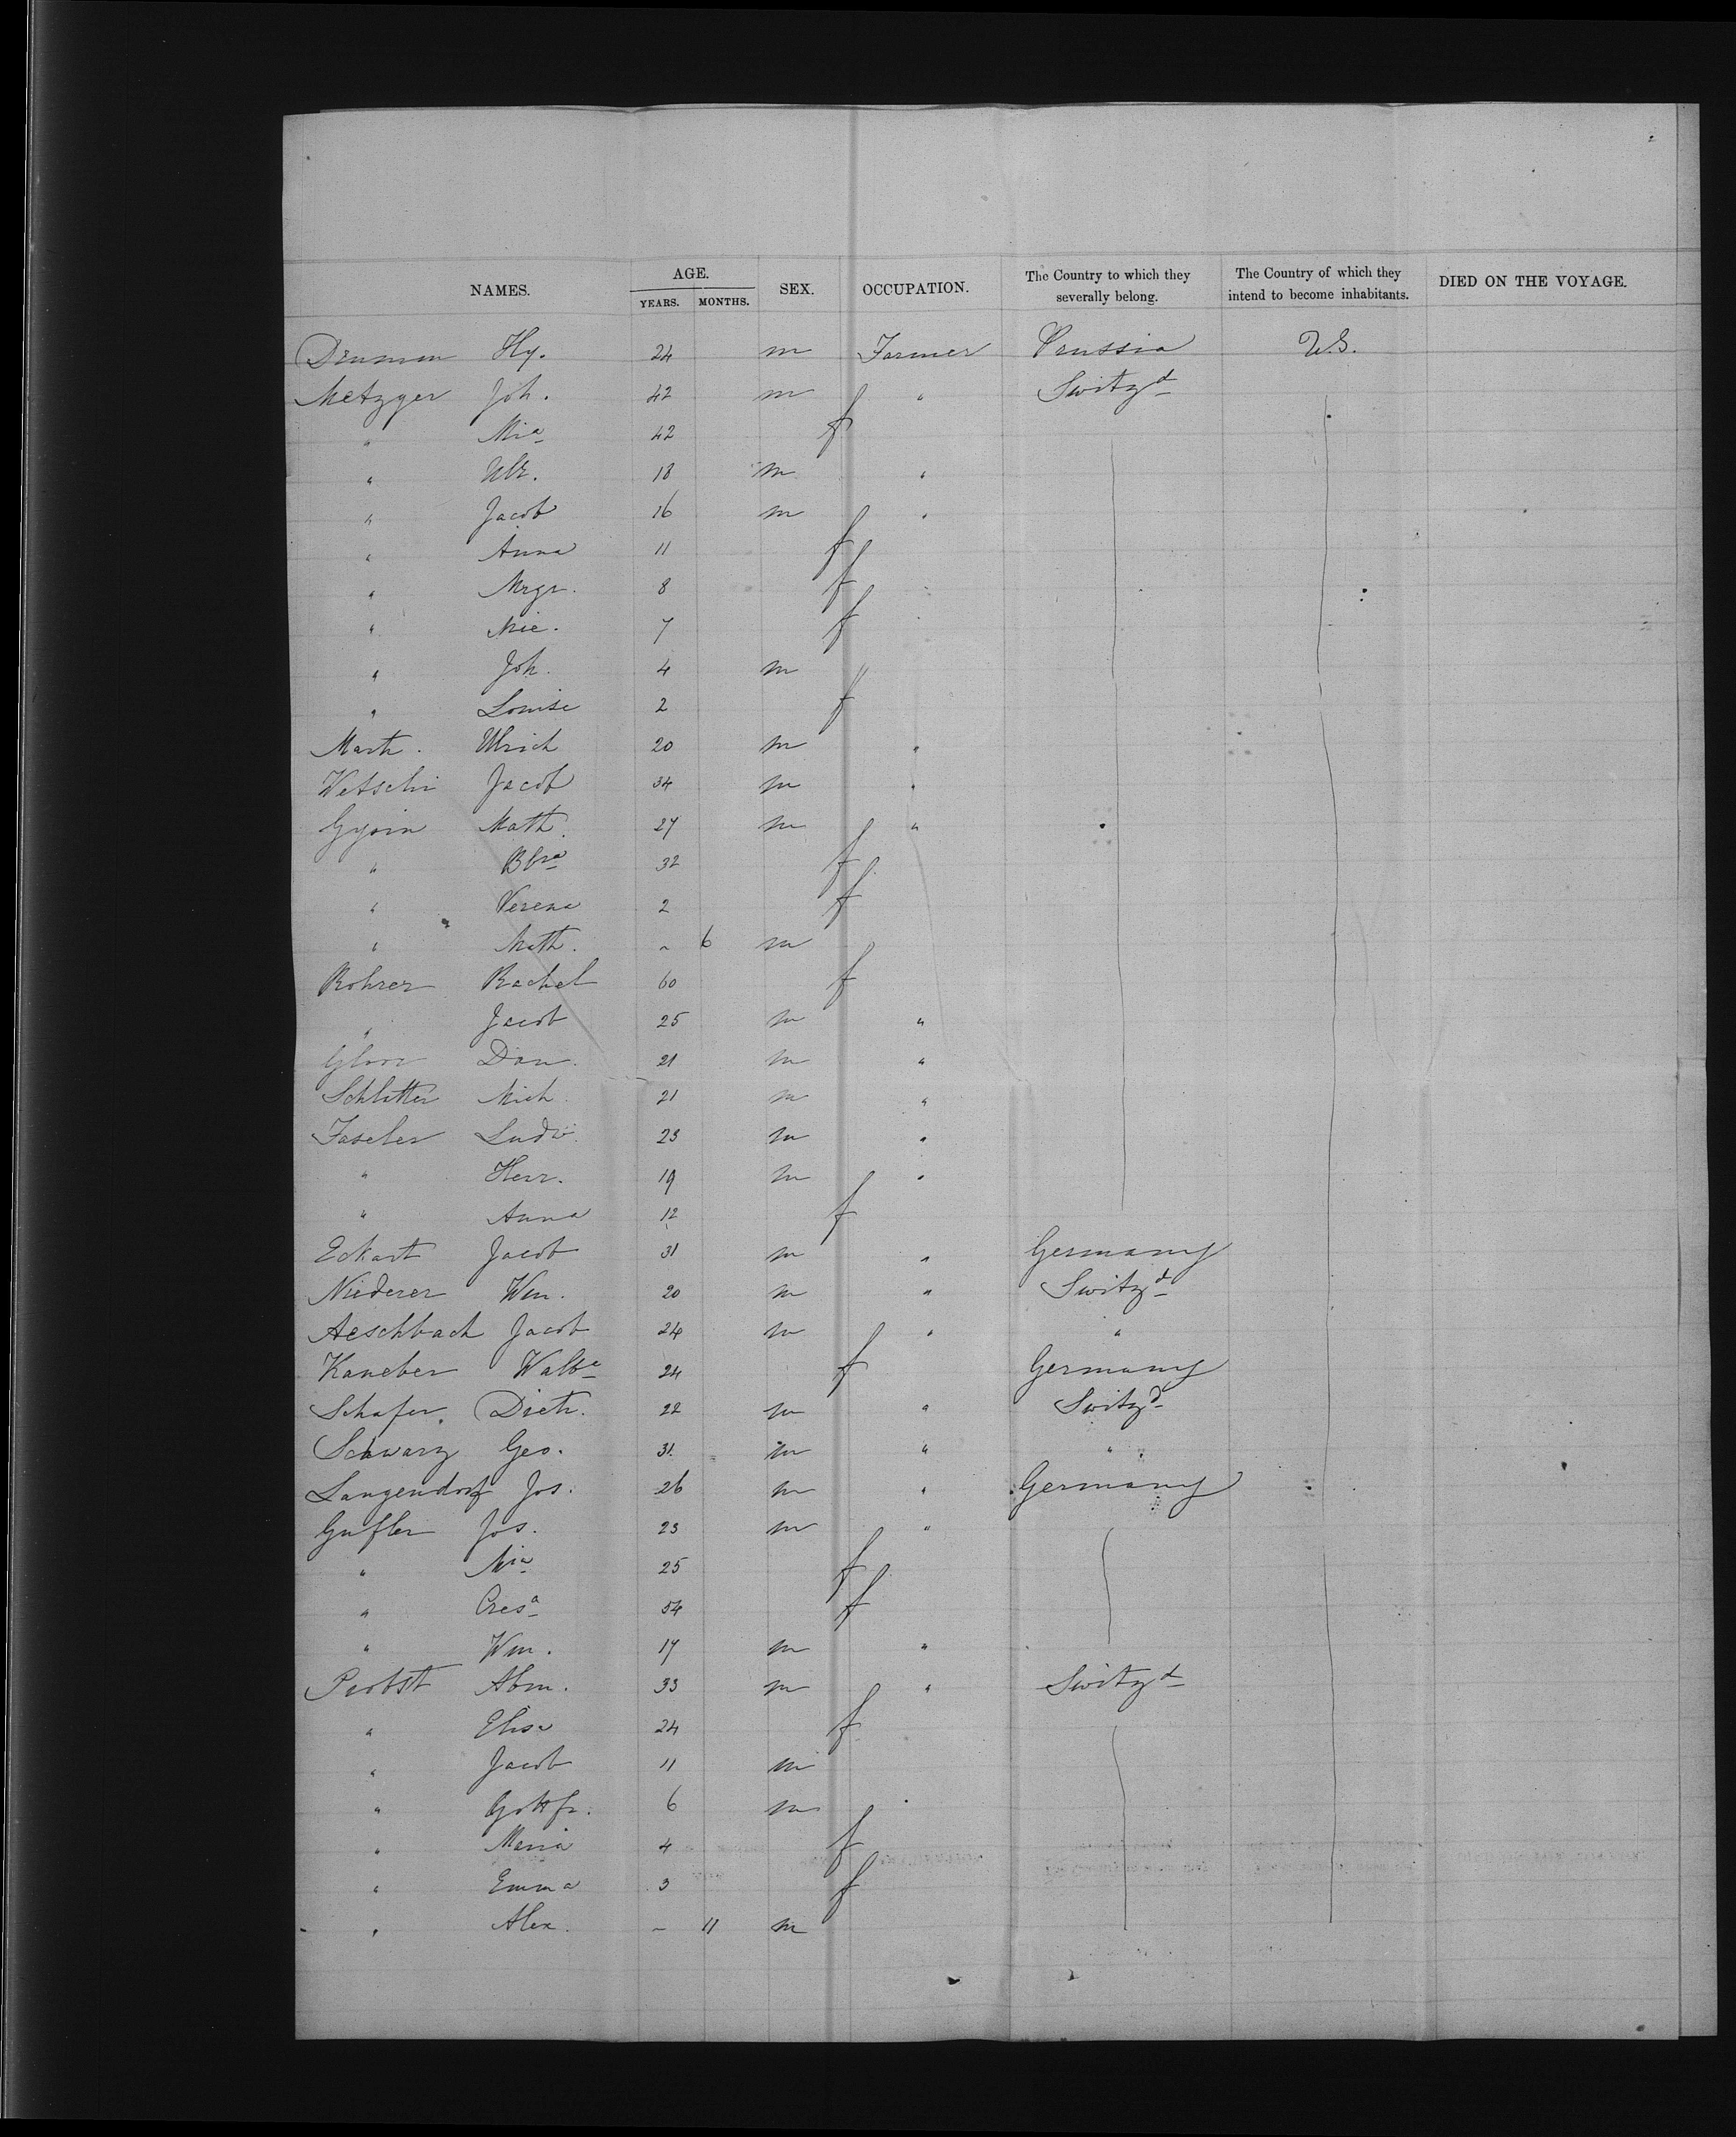 NAMES. AGE. YEARS. MONTHS. SEX. OCCUPATION. The Country to which they severally belong. The Country of which they intend to become inhabitants. DIED ON THE VOYAGE.
Hy. 24 m Farmer Prussia U.S.
Metzger Joh. 42 m " Switzd
" Mia 42 f
" Ulr. 18 m "
" Jacob 16 m "
" Anna 11 f
" Mrgr. 8 f
" Mie. 7 f
" Joh. 4 m
" Louise 2 f
Marti. Ulrich 20 m "
Wetschi Jacob 34 m "
Gysin Math. 27 m "
" Bbra 32 f
" Verena 2 f
" Math. ~ 6 m
Rohrer Rachel 60 f
" Jacob 25 m "
Gloor Dan. 21 m "
Schlatter Mich. 21 m "
Faseler Ludw. 23 m "
" Herr. 19 m "
" Anna 12 f
Eckart Jacob 31 m " Germany
Niederer Wm. 20 m " Switzd
Aeschbach Jacob 24 m " "
Kaneber Walba 24 f Germany
Schafer. Dietr. 22 m " Switzd
Schwarz Geo. 31. m " "
Langendorf Jos. 26 m " Germany
Gufler Jos. 23 m "
" Mia 25 f
" Cresa 54 f
" Wm. 17 m "
Probst Abm. 33 m " Switzd
" Elise 24 f
" Jacob 11 m
" Gottfr. 6 m
" Maria 4 f
" Emma 3 f
" Alex. ~ 11 m